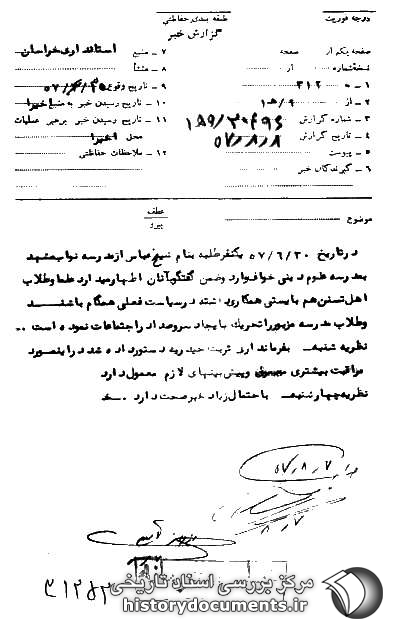 درجه فوریت
طبقه بندی حفاظتی
گزارش خبر
صفحه یکم از صفحه
نسخه شماره از
۱ - به ۳۱۲
۲ - از ۹ ه ۱
۳ - شماره گزارش
۴ - تاریخ گزارش ۵۷/۸/۸
۵ - پیوست
۶ - گیرندگان خبر
۷ - منبع استانداری خراسان
۸ - منشأ
۹ - تاریخ وقوع
۱۰ - تاریخ رسیدن خبر به منبع اخیرا
۱۱ - تاریخ رسیدن خبر به رهبر عملیات
محل اخیرا
۱۲ - ملاحظات حفاظتی
موضوع
عطف
پیرو
در تاریخ ۵۷/۶/۳۰ یکنفر طلبه بنام شیخ عباس از مدرسه نواب مشهد
بمدرسه علوم دینی خواف وارد و ضمن گفتگو با آنان اظهار میدارد علما و طلاب
اهل تسنن هم بایستی همکاری داشته و در سیاست فعلی همگام باشند
و طلاب مدرسه مزبور را تحریک با یجاد سر و صدا در اجتماعات نموده است ..
نظریه شنبه - بفرمانداری تربت حیدریه دستور داده شد در اینمورد
مراقبت بیشتری و پیش بینیهای لازم معمول دارد
نظریه چهارشنبه - با احتمال زیاد خبر صحت دارد .
۵۷/۸/۷
۸/۷
مرکز بررسی اسناد تاریخی
historydocuments.ir